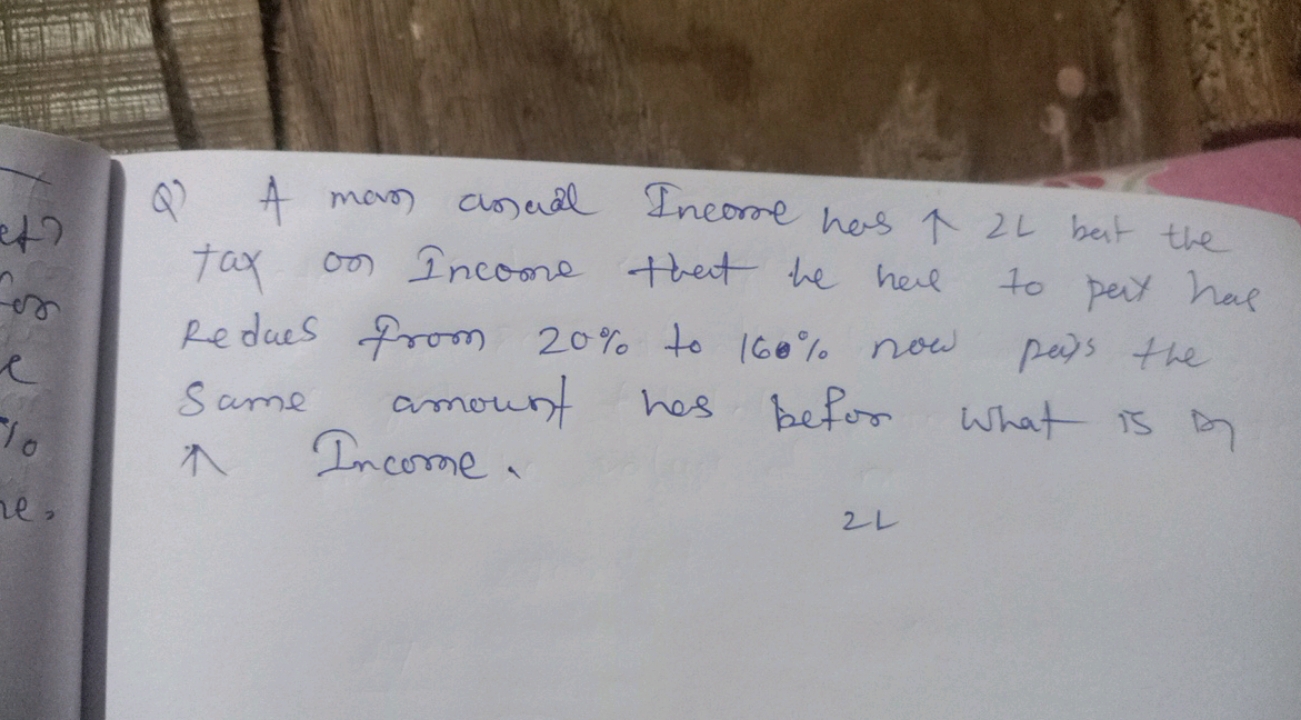 et?
for
e
%
re,
Q) A man anual Income has ↑ 2L but the
tax on Income that he have to pay has
Redues from 20% to 16% now pays the
Same amount has befor what is
↑ Income.
2L